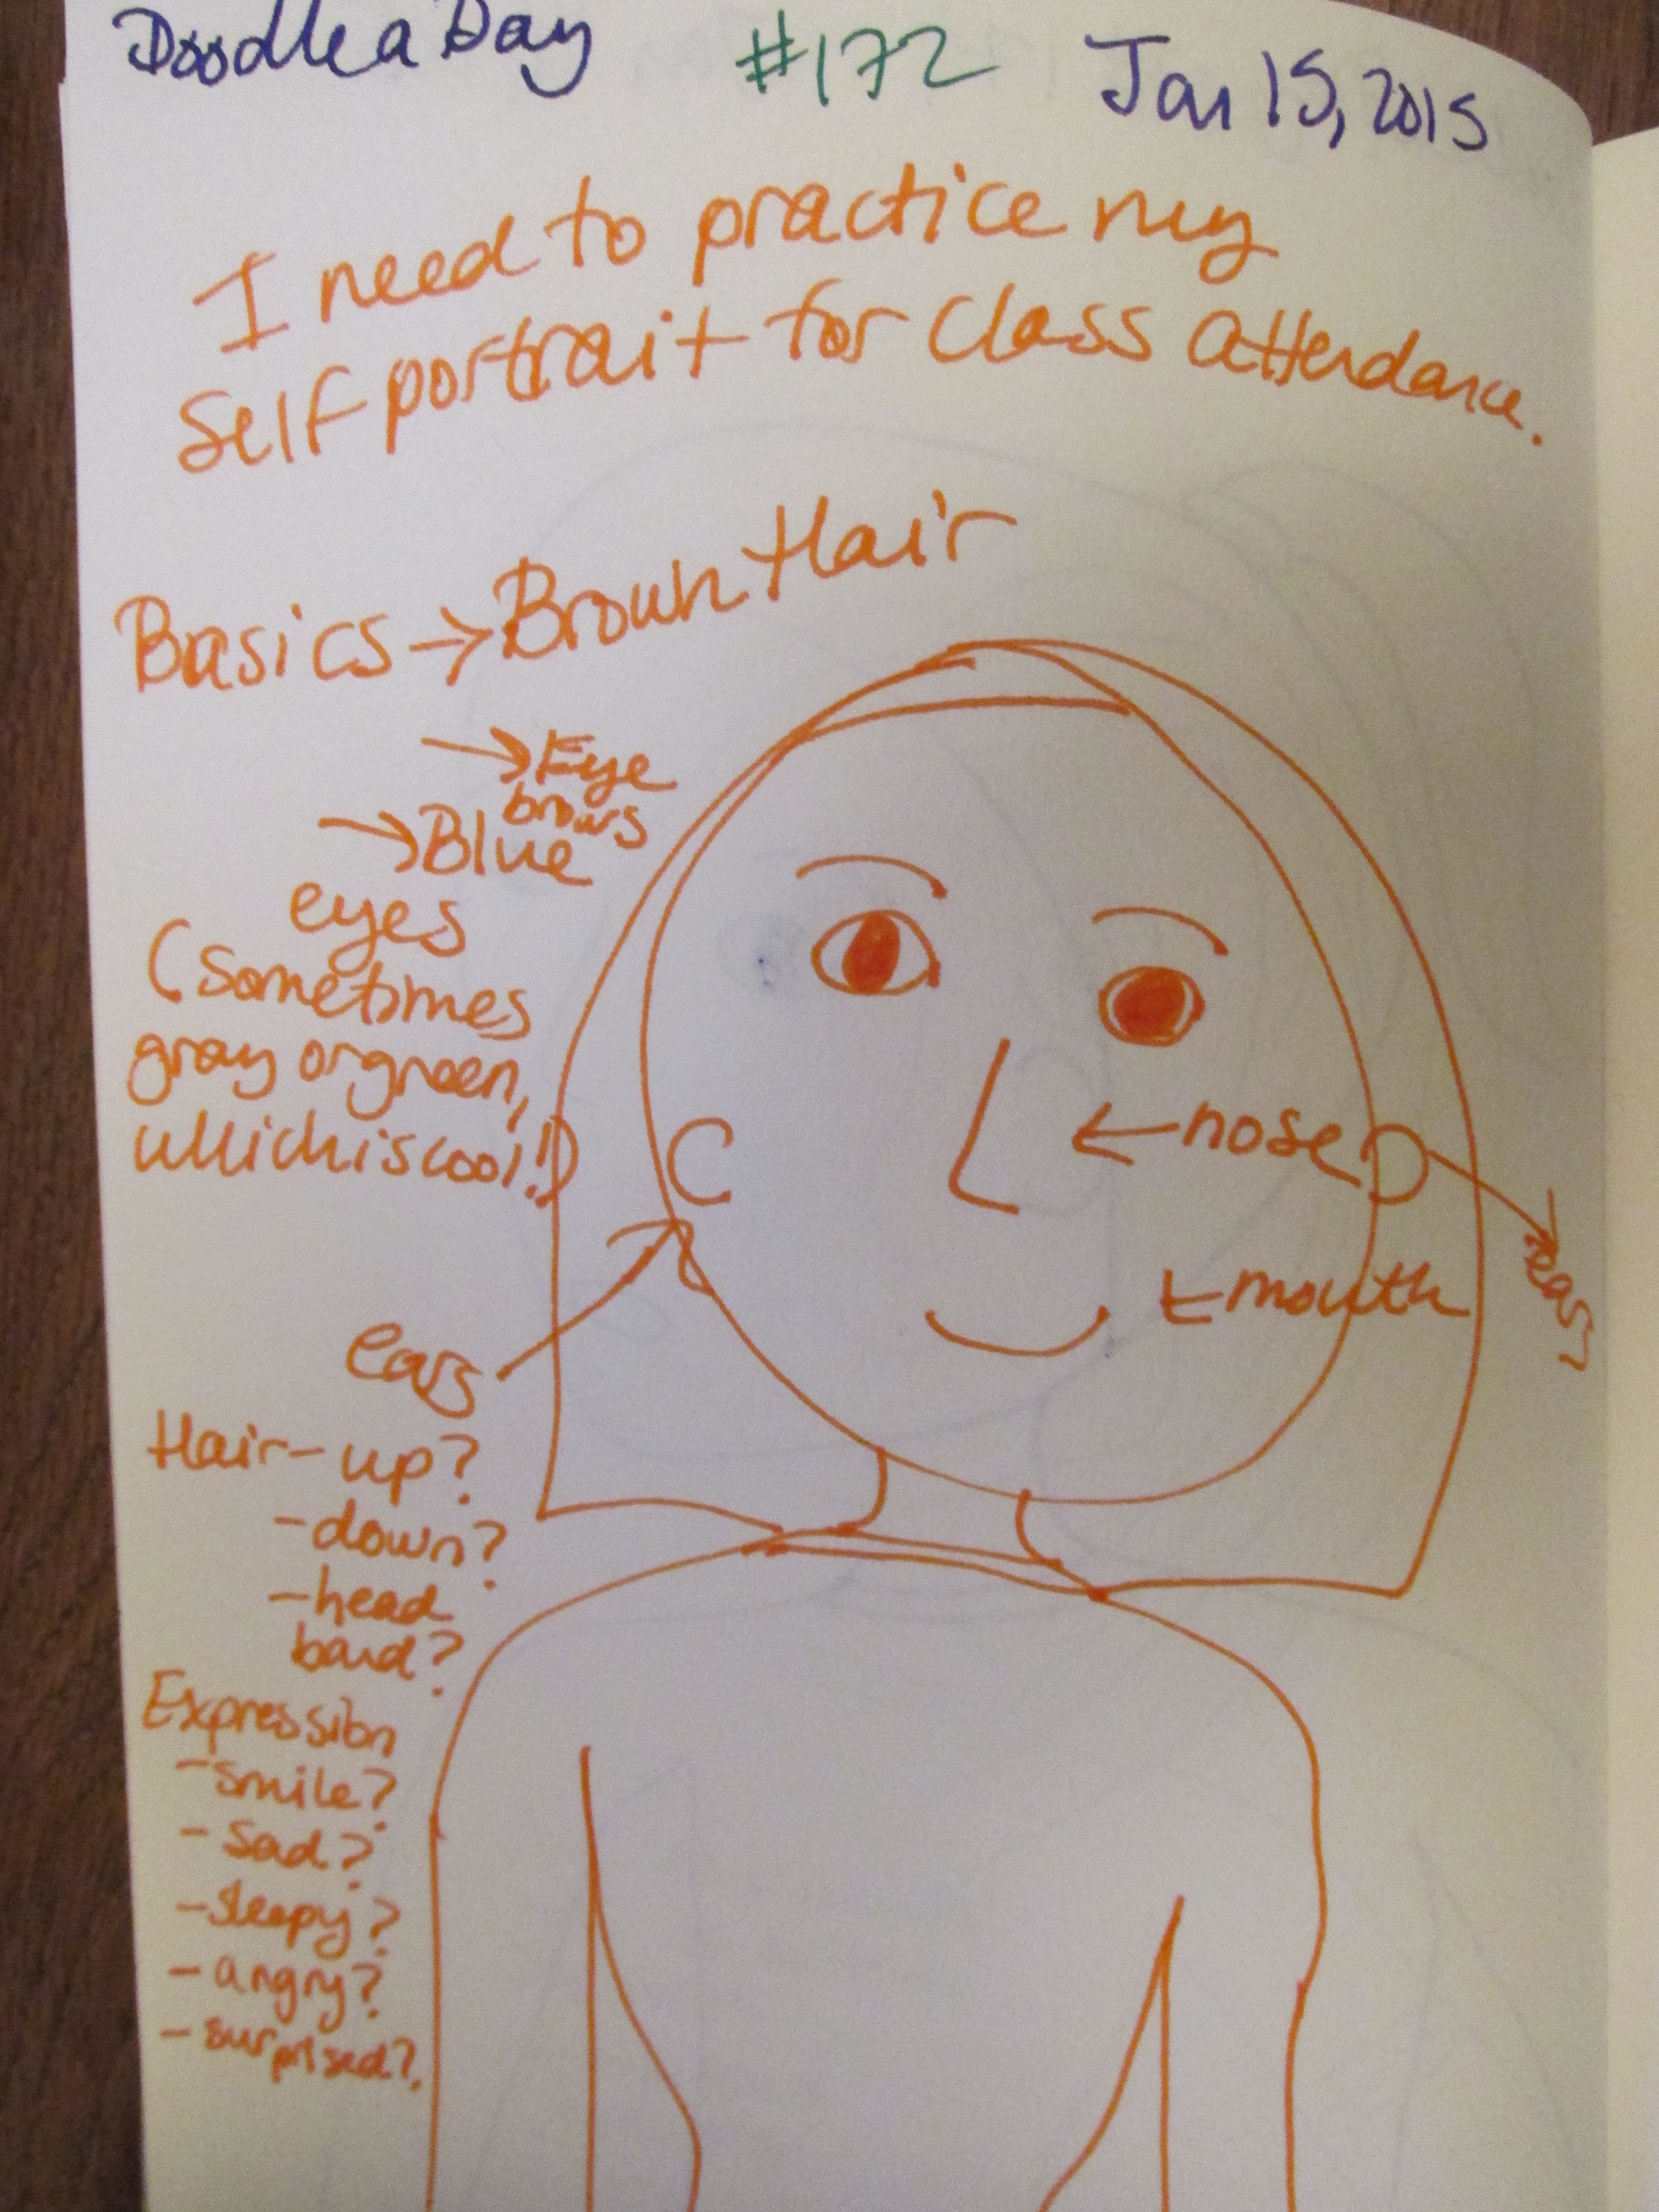 Doodle a Day #172 Jan 15, 2015
I need to practice my
Self portrait for Class Attendance.
Basics → Brown Hair
→ Eye
brows
→ Blue
eyes
(sometimes
gray or green,
which is cool!)
← nose
ears
← mouth
ears
Hair - up?
- down?
- head
band?
Expression
- smile?
- sad?
- sleepy?
- angry?
- surprised?